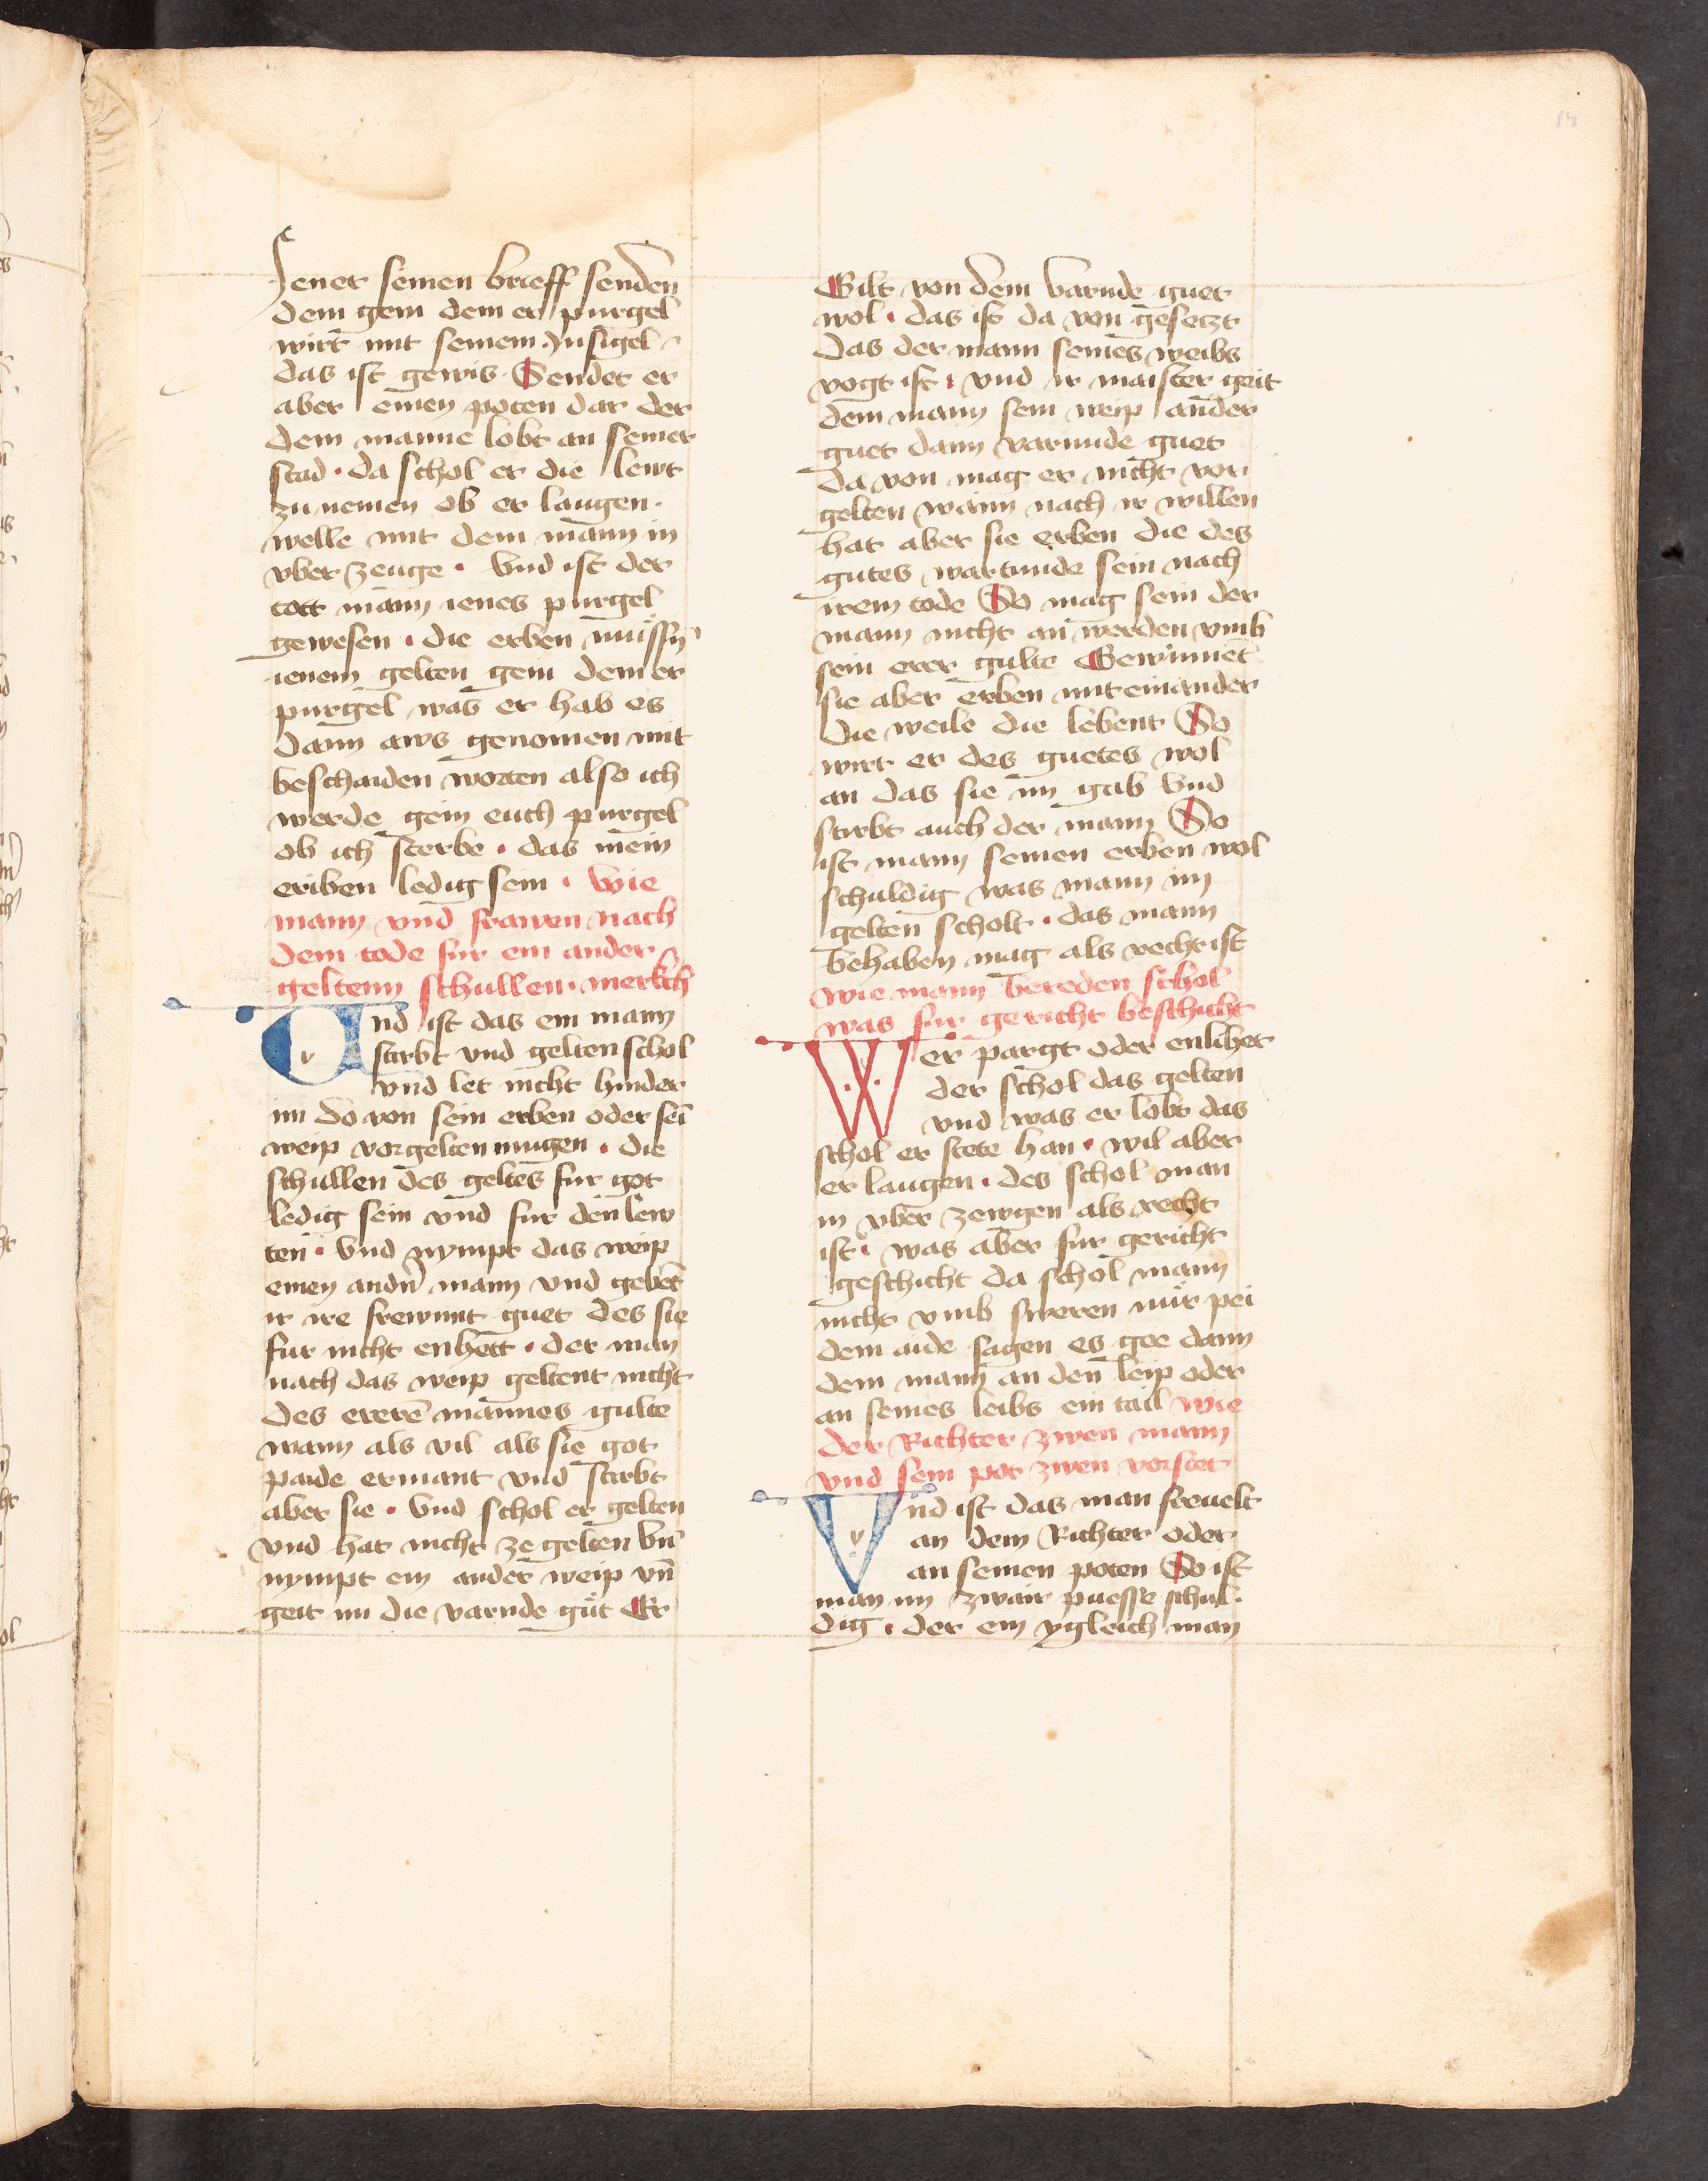 Jener seinen brieff senden
dem gein dem er purgel
wirt mit seinem Jnsigel
das ist gewis Sendet er
aber einen poten dar der
dem manne lobt an seiner
stad · da schol er die lewt
zu nemen ob er laugen ·
welle mit dem mann in
vber zeuge · Vnd ist der
tott mann ienes purgel
gewesen · die erben müssn̄
ienem gelten gein dem er
purgel was er hab es
dann aws genomen mit
beschaiden worten also ich
werde gein euch purgel
ob ich sterbe · das mein
eriben ledig sein · Wie
mann vnd frawen nach
dem tode fur ein ander
geltenn schullen · merkch
Vnd ist das ein mann
stirbt vnd gelten schol
vnd let nicht hinder
im do von sein erben oder sei
weip vorgelten mugen · die
schullen des geltes fur got
ledig sein vnd fur den lew
ten · Vnd nympt das weip
einen andn̄ mann vnd gebet
ir ire frewnnt guet des sie
fur nicht enhett · der man
nach das weip geltent nicht
des ererē mannes gulte
wann als vil als sie got
paide ermant vnd stirbt
aber sie · Vnd schol er gelten
vnd hat nicht ze gelten vn̄
nympt ein ander weip vn̄
geit im die varnde gůt Er
Gilt von dem varnde guet
wol · das ist da von gesetzt
Das der mann seines weibs
vogt ist · vnd ir maister geit
dem mann sein weip ander
guet dann varunde guet
da von mag er nicht vor
gelten wann nach ir willen
hat aber sie erben die des
gutes wartunde sein nach
irem tode So mag sein der
mann nicht an werden vmb
sein erer gulte Gewinnet
sie aber erben mit einander
Die weile die lebent So
wirt er des guetes wol
an das sie im gab Vnd
stirbt auch der mann So
ist mann seinen erben wol
schuldig was mann im
gelten scholt · das mann
behaben mag als recht ist
Wie mann bereden schol
was fur gericht beschicht
Wer pargt oder enlihet
der schol das gelten
vnd was er lobt das
schol er stete han · wil aber
er laugen · des schol man
in vber zewgen als recht
ist · was aber fur gericht
geschicht da schol mann
nicht vmb sweren nür pei
dem aide sagen es gee dann
dem mann an den leip oder
an seines leibs ein tail Wie
der Richter zwen mann
vnd sein pot zwen vorstet
Vnd ist das man freuelt
an dem Richter oder
an seinen poten So ist
man im zwair puesse schul ·
dig · der ein ygleich man